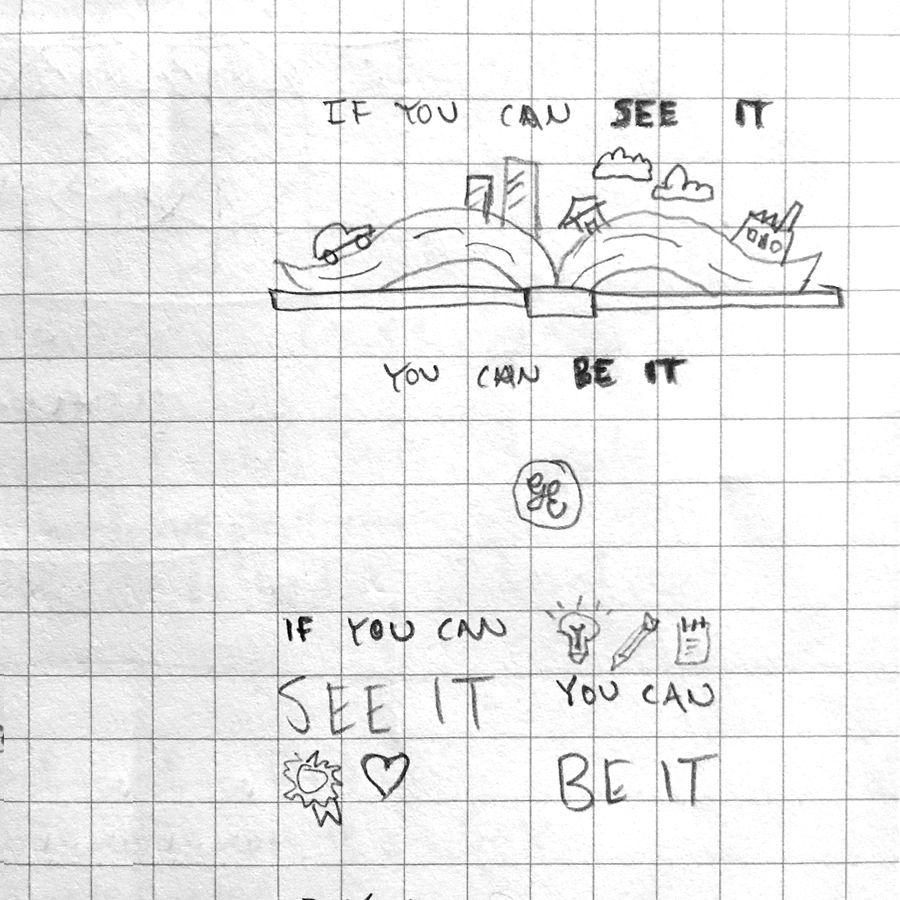 IF YOU CAN SEE IT
YOU CAN BE IT
GE
IF YOU CAN
SEE IT
YOU CAN
BE IT